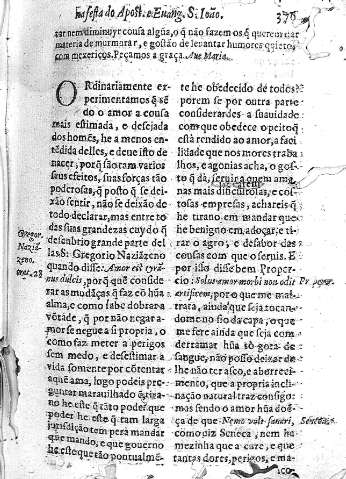 na festa do Apost. e Euang. S. Ioão. 376
zar nem diminuyr cousa algũa, o q̃ não fazem os q̃ querem dar
materia de murmurar, e gostão de levantar humores quietos
com mexericos. Peçamos a graça. Aue Maria.
ORdinariamente ex
perimentamos q̃ sẽ
do o amor a cousa
mais estimada, e desejada
dos homẽs, he a menos en-
tẽdida delles, e deue isto de
nacer, porq̃ são tam varios
seus effeitos, suas forças tão
poderosas, q̃ posto q̃ se dei-
xão sentir, não se deixão de
todo declarar, mas entre to
das suas grandezas cuydo q̃
descubrio grande parte del
las S. Gregorio Naziãzeno
quando disse: Amor est tyrã-
nus dulcis, porq̃ que conside
zar as mudãças q̃ faz cõ hũa
alma, e como sabe dobrar a
võtade, q̃ por não negar a-
mor se negue a si propria, o
como faz meter a perigos
sem medo, e desestimar a
vida somente por cõtentar
aquẽ ama, logo podeis pre-
guntar marauilhado q̃ tira-
no he este q̃ tãto pode? que
poder he este q̃ tam larga
jurisdição tem pera mandar
que mando, e que gouerno
he este que tão pontualmẽ-
Gregor.
Naziã-
zeno.
orat. 28
te he obedecido de todos?
porem se por outra parte
considerardes a suauidade
com que obedece o peito q̃
està rendido ao amor, a faci
lidade que nos mores traba
lhos, e agonias acha, o gos-
to q̃ dà, seruir a quem ama
nas mais difficultosas, e cus-
tosas empresas, achareis q̃
he tirano em mandar que
he benigno em adoçar, e ti-
rar o agro, e desabor das
cousas com que o seruis. E
por isso disse bem Proper-
cio: Solus amor morbi non odit
artificem, por o que me mal-
trata, ainda que seja tocan-
do me no fio da capa, o que
me fere ainda que seja com
derramar hũa sò gota de
sangue, não posso deixar de
lhe não ter asco, e aborreci-
mento, que a propria incli-
nação natural traz consigo:
mas sendo o amor hũa doẽ-
ça de que Nemo vult sanari,
como diz Seneca, nem ha
mezinha que a cure, e que
tantas dores, perigos, e ma-
Proper.
Seneca.